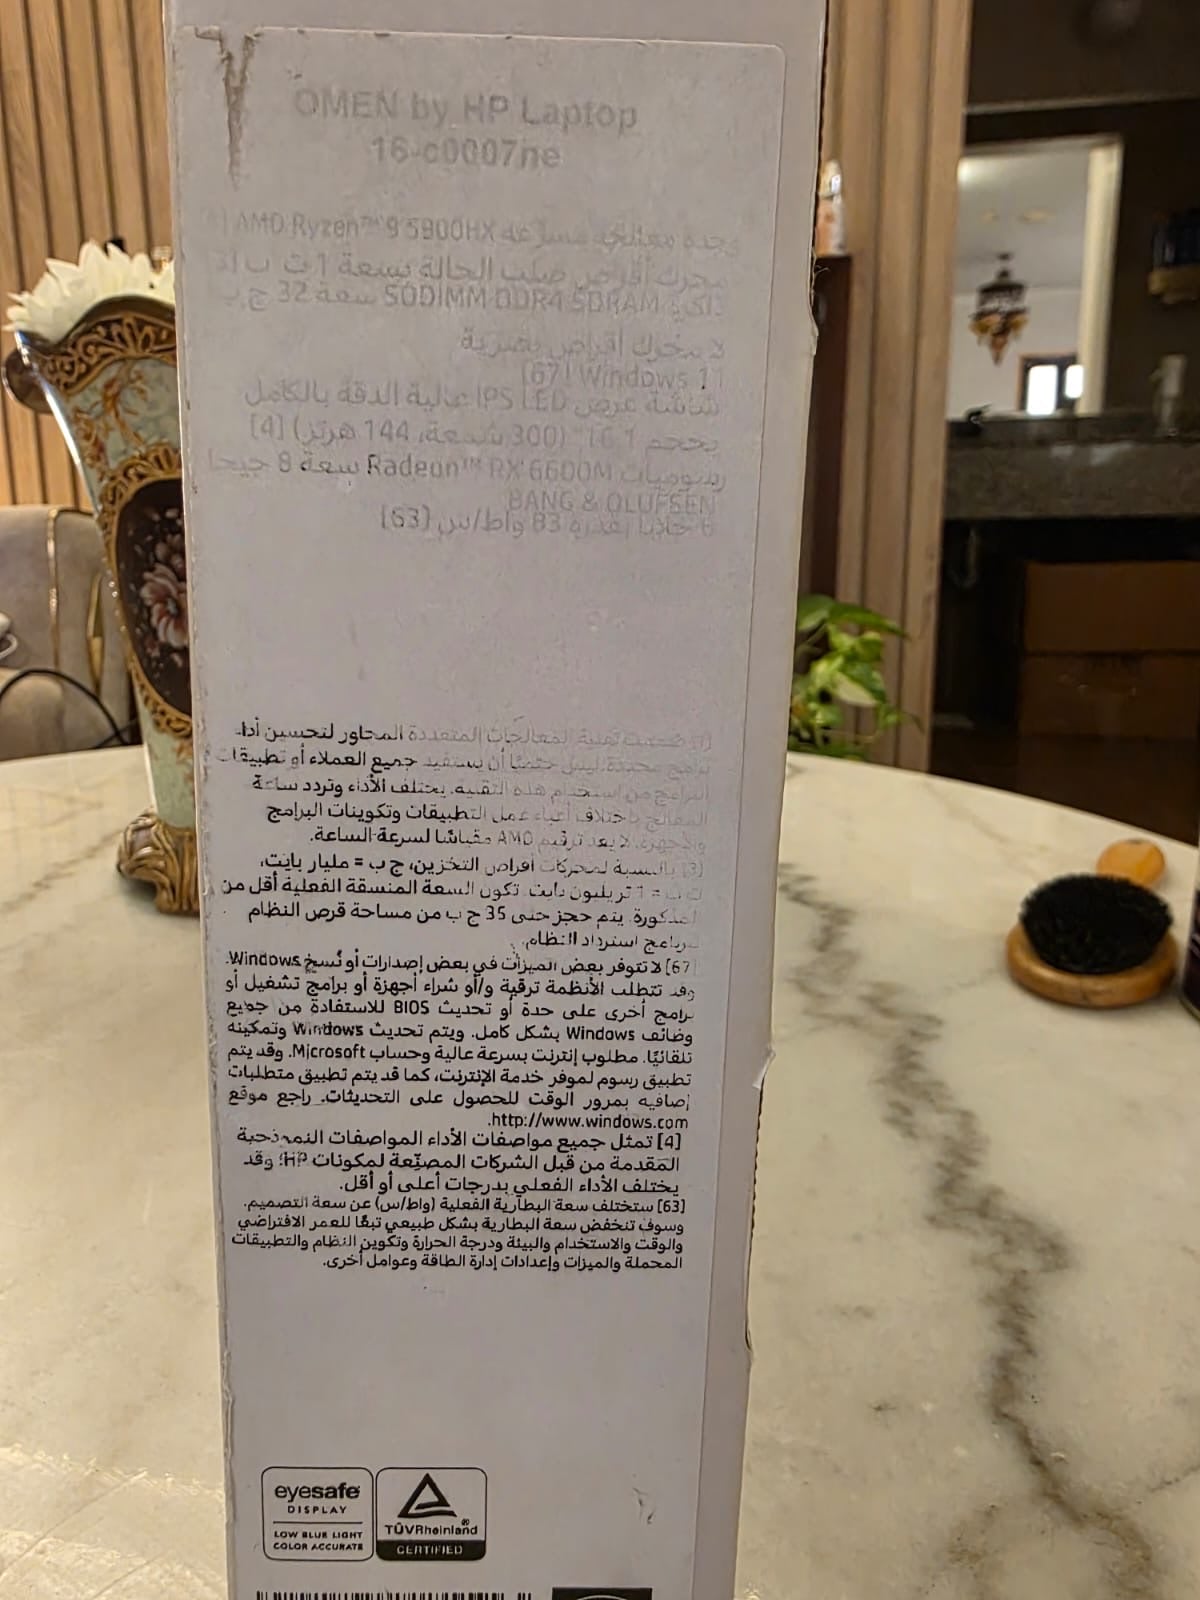 OMEN by HP Laptop
16-c0007ne
وحدة معالجة مسرّعة AMD Ryzen™ 9 5900HX
محرك أقراص صلب الحالة بسعة 1 ت ب [3]
ذاكرة SODIMM DDR4 SDRAM سعة 32 ج.ب
لا محرك أقراص بصرية
Windows 11 [67]
شاشة عرض IPS LED عالية الدقة بالكامل
بحجم 16.1" (300 شمعة، 144 هرتز) [4]
رسوميات Radeon™ RX 6600M سعة 8 جيجا
BANG & OLUFSEN
6 خلايا بقدرة 83 واط/س [63]
[1] صُممت تقنية المعالجات المتعددة المحاور لتحسين أداء
برامج محددة. ليس حتميًا أن يستفيد جميع العملاء أو تطبيقات
البرامج من استخدام هذه التقنية. يختلف الأداء وتردد ساعة
المعالج باختلاف أعباء عمل التطبيقات وتكوينات البرامج
والأجهزة. لا يعد ترقيم AMD مقياسًا لسرعة الساعة.
[3] بالنسبة لمحركات أقراص التخزين، ج ب = مليار بايت،
ت ب = 1 تريليون بايت. تكون السعة المنسقة الفعلية أقل من
المذكورة. يتم حجز حتى 35 ج ب من مساحة قرص النظام
لبرنامج استرداد النظام.
[67] لا تتوفر بعض الميزات في بعض إصدارات أو نُسخ Windows.
وقد تتطلب الأنظمة ترقية و/أو شراء أجهزة أو برامج تشغيل أو
برامج أخرى على حدة أو تحديث BIOS للاستفادة من جميع
وظائف Windows بشكل كامل. ويتم تحديث Windows وتمكينه
تلقائيًا. مطلوب إنترنت بسرعة عالية وحساب Microsoft. وقد يتم
تطبيق رسوم لموفر خدمة الإنترنت، كما قد يتم تطبيق متطلبات
إضافية بمرور الوقت للحصول على التحديثات. راجع موقع
http://www.windows.com.
[4] تمثل جميع مواصفات الأداء المواصفات النموذجية
المقدمة من قبل الشركات المصنّعة لمكونات HP؛ وقد
يختلف الأداء الفعلي بدرجات أعلى أو أقل.
[63] ستختلف سعة البطارية الفعلية (واط/س) عن سعة التصميم.
وسوف تنخفض سعة البطارية بشكل طبيعي تبعًا للعمر الافتراضي
والوقت والاستخدام والبيئة ودرجة الحرارة وتكوين النظام والتطبيقات
المحملة والميزات وإعدادات إدارة الطاقة وعوامل أخرى.
eyesafe
DISPLAY
LOW BLUE LIGHT
COLOR ACCURATE
TÜVRheinland®
CERTIFIED